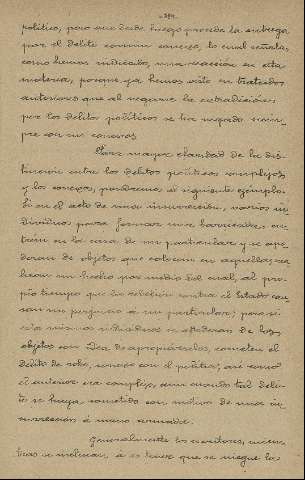 político, pero que desde luego proceda la entrega
por el delito común conexo, lo cual señala,
como hemos indicado, una reacción en esta
materia, porque ya hemos visto en tratados
anteriores que al negarse la extradición
por los delitos políticos se ha negado siem-
pre por sus conexos
Para mayor claridad de la dis-
tinción entre los delitos políticos complejos
y los conexos, pondremos el siguiente ejemplo:
Si en el acto de una insurrección, varios in-
dividuos para formar una barricada, en-
tran en la casa de un particular y se apo-
deran de objetos que colocan en aquella, rea-
lizan un hecho por medio del cual, al pro-
pio tiempo que la rebelión contra el Estado cau-
san un perjuicio a un particular; pero si
esos mismos individuos se apoderan de los
objetos con idea de apropiárselos, cometen el
delito de robo, conexo con el político, así como
el anterior era complejo, aun cuando tal deli-
to se haya cometido con motivo de una in-
surrección a mano armada.
Generalmente los escritores, mien-
tras se inclinan, a que se niegue la